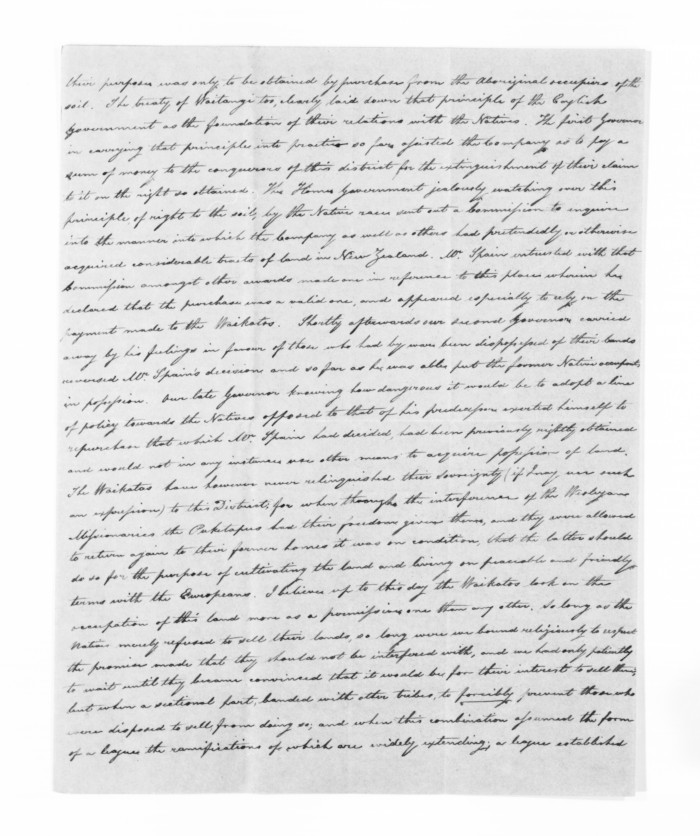 their purposes was only to be obtained by purchase from the Aboriginal occupiers of the
soil. The treaty of Waitangi too, clearly laid down that principle of the English
Government as the foundation of their relations with the Natives. The first Governor
in carrying that principle into practice so far assisted the Company as to pay a
sum of money to the conquerors of this district for the extinguishment of their claim
to it on the right so obtained. The Home Government jealously watching over this
principle of right to the soil, by the Native race sent out a Commission to enquire
into the manner into which the Company as well as others had pretendedly or otherwise
acquired considerable tracts of land in New Zealand. Mr. Spain entrusted with that
Commission amongst other awards made one in reference to this place wherein he
declared that the purchase was a valid one, and appeared especially to rely on the
payment made to the Waikatos. Shortly afterwards our second Governor carried
away by his feelings in favour of those who had by war been dispossessed of their lands
reversed Mr. Spain's decision and so far as he was able, put the former Native occupants
in possession. Our late Governor knowing how dangerous it would be to adopt a line
of policy towards the Natives opposed to that of his predecessor exerted himself to
repurchase that which Mr. Spain had decided, had been previously rightly obtained
and would not in any instance use other means to acquire possession of land.
The Waikatos have however never relinquished their sovereignty (if I may use such
an expression) to this District, for when through the interference of the Wesleyan
Missionaries the Puketapus had their freedom given them, and they were allowed
to return again to their former homes it was on condition, that the latter should
do so for the purpose of cultivating the land and living on peaceable and friendly
terms with the Europeans. I believe up to this day the Waikatos look on the
occupation of this land more as a permissive one than any other. So long as the
Natives merely refused to sell their lands, so long were we bound religiously to respect
the promise made that they should not be interfered with, and we had only patiently
to wait until they became convinced that it would be for their interest to sell them;
but when a sectional part, banded with other tribes, to forcibly prevent those who
were disposed to sell from doing so; and when this combination assumed the form
of a league the ramifications of which are widely extending; a league established